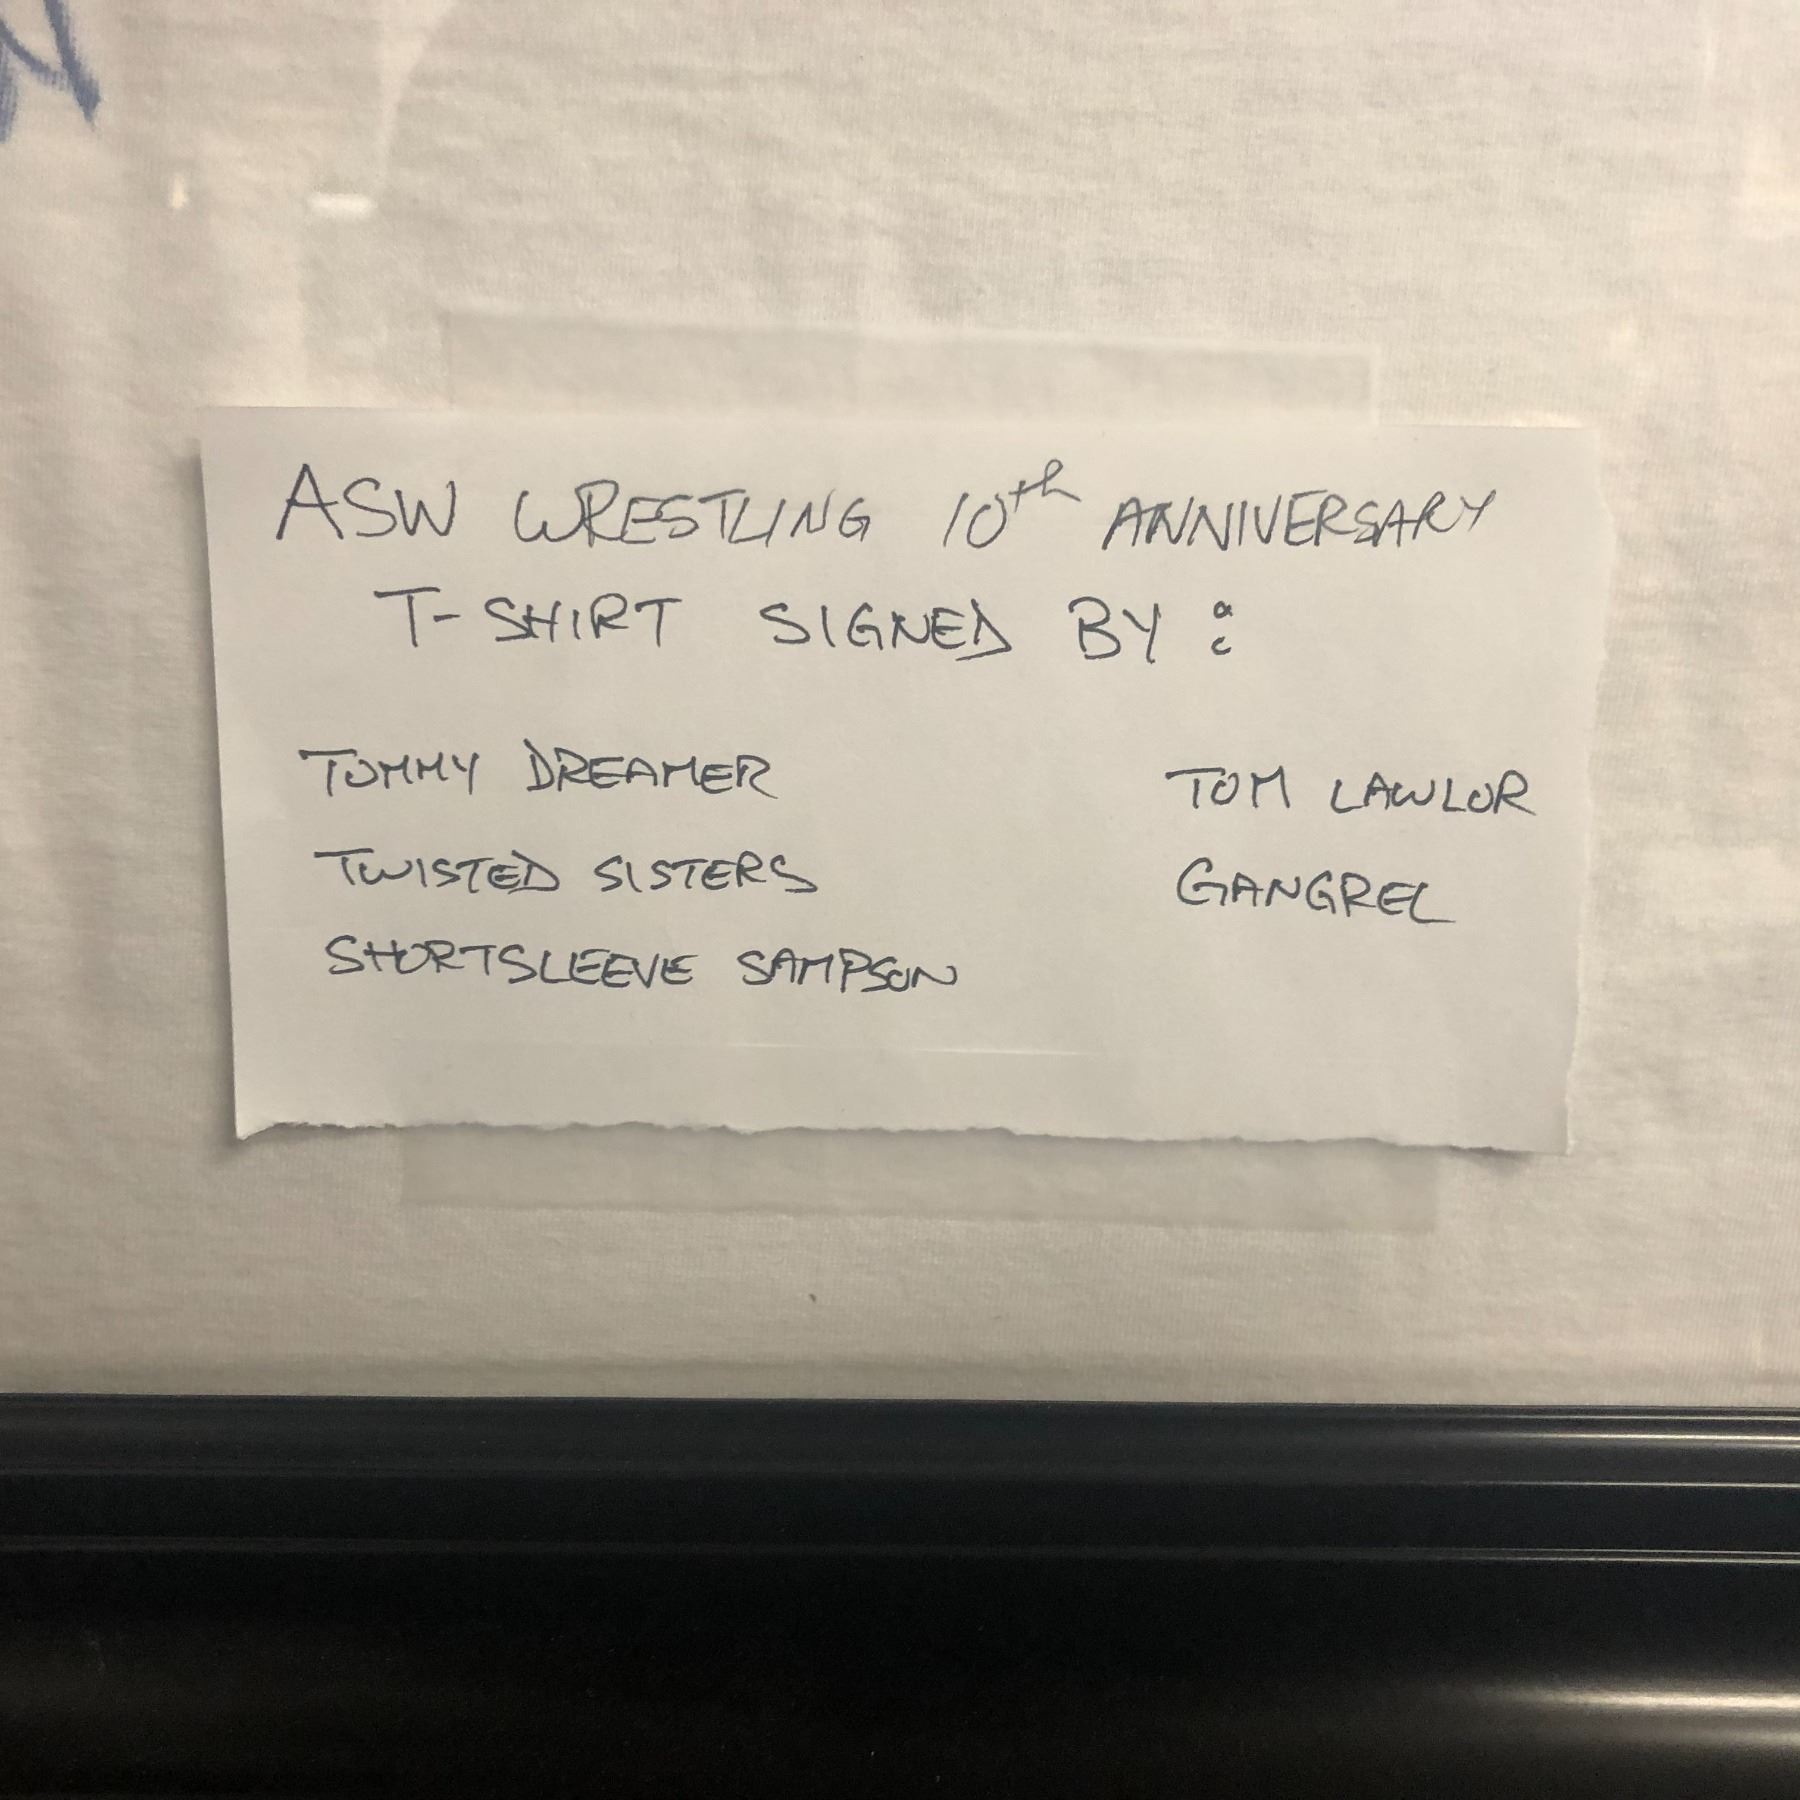 ASW WRESTLING 10th ANNIVERSARY
T-SHIRT SIGNED BY:
TOMMY DREAMER
TWISTED SISTERS
SHORTSLEEVE SAMPSON
TOM LAWLOR
GANGREL